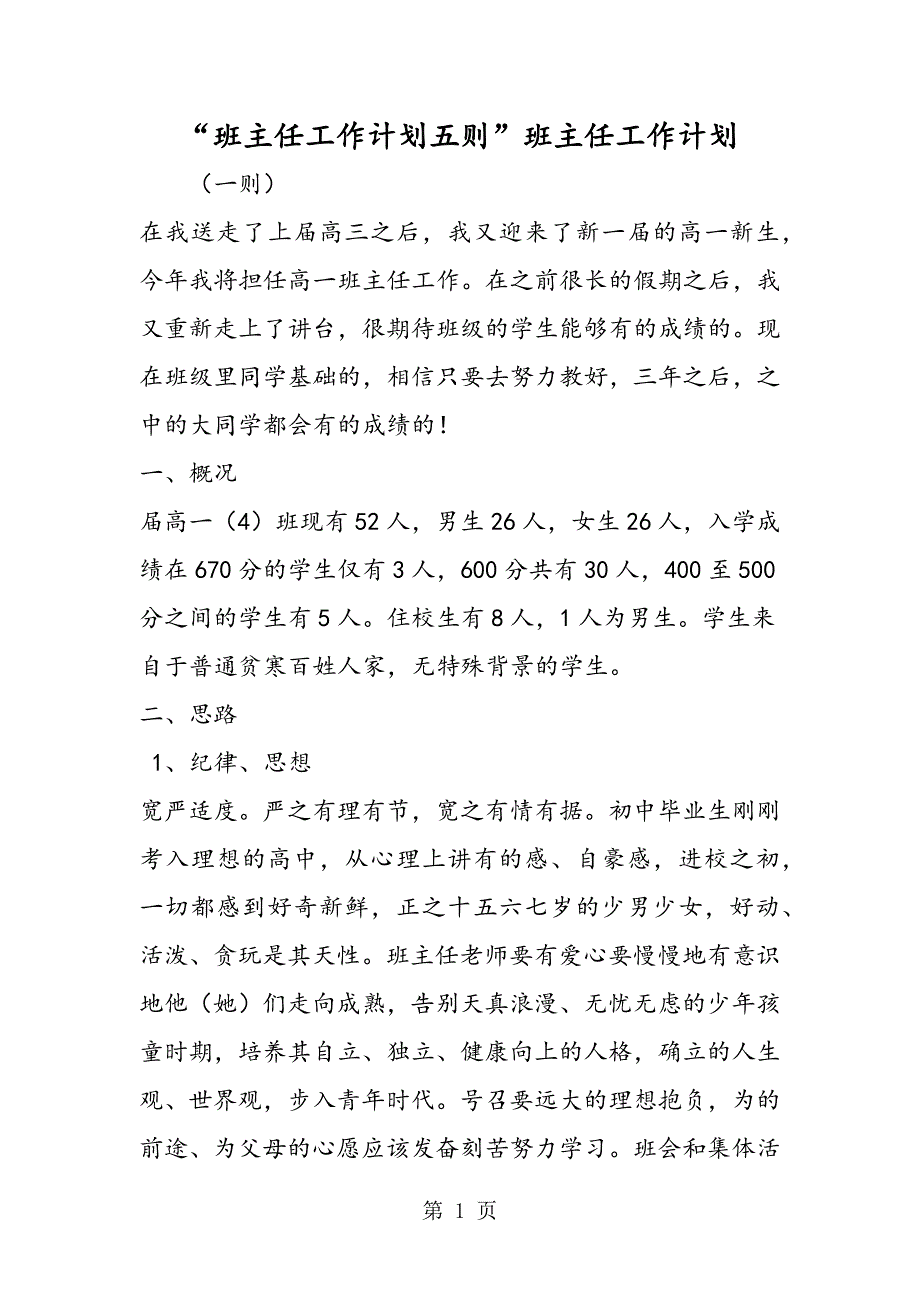 “班主任工作计划五则”班主任工作计划
（一则）
在我送走了上届高三之后，我又迎来了新一届的高一新生，
今年我将担任高一班主任工作。在之前很长的假期之后，我
又重新走上了讲台，很期待班级的学生能够有的成绩的。现
在班级里同学基础的，相信只要去努力教好，三年之后，之
中的大同学都会有的成绩的！
一、概况
届高一（4）班现有52人，男生26人，女生26人，入学成
绩在670分的学生仅有3人，600分共有30人，400至500
分之间的学生有5人。住校生有8人，1人为男生。学生来
自于普通贫寒百姓人家，无特殊背景的学生。
二、思路
1、纪律、思想
宽严适度。严之有理有节，宽之有情有据。初中毕业生刚刚
考入理想的高中，从心理上讲有的感、自豪感，进校之初，
一切都感到好奇新鲜，正之十五六七岁的少男少女，好动、
活泼、贪玩是其天性。班主任老师要有爱心要慢慢地有意识
地他（她）们走向成熟，告别天真浪漫、无忧无虑的少年孩
童时期，培养其自立、独立、健康向上的人格，确立的人生
观、世界观，步入青年时代。号召要远大的理想抱负，为的
前途、为父母的心愿应该发奋刻苦努力学习。班会和集体活
第 1 页